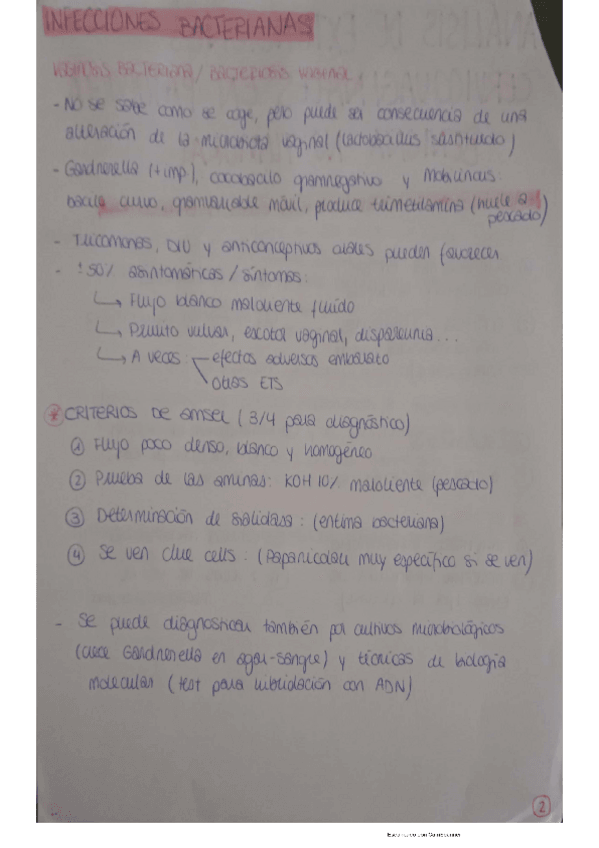 INFECCIONES BACTERIANAS
VAGINOSIS BACTERIANA / BACTERIOSIS VAGINAL:
- No se sabe como se coge, pero puede ser consecuencia de una
alteración de la microbiota vaginal (lactobacillus sustituido)
- Gardnerella (+ imp), cocobacilo gramnegativo y Mobiluncus:
bacilo curvo, gramvariable móvil, produce trimetilamina (huele a
pescado)
- Tricomonas, DIU y anticonceptivos orales pueden favorecer
- 50% asintomáticas / síntomas:
Flujo blanco maloliente fluido
Prurito vulvar, escozor vaginal, dispareunia...
A veces: efectos adversos embarazo
otras ETS
* CRITERIOS DE AMSEL (3/4 para diagnóstico)
1 Flujo poco denso, blanco y homogéneo
2 Prueba de las aminas: KOH 10% maloliente (pescado)
3 Determinación de sialidasa: (enzima bacteriana)
4 Se ven clue cells: (Papanicolau muy específico si se ven)
- Se puede diagnosticar también por cultivos microbiológicos
(crece Gardnerella en agar-sangre) y técnicas de biología
molecular (test para hibridación con ADN)
2
Escaneado con CamScanner